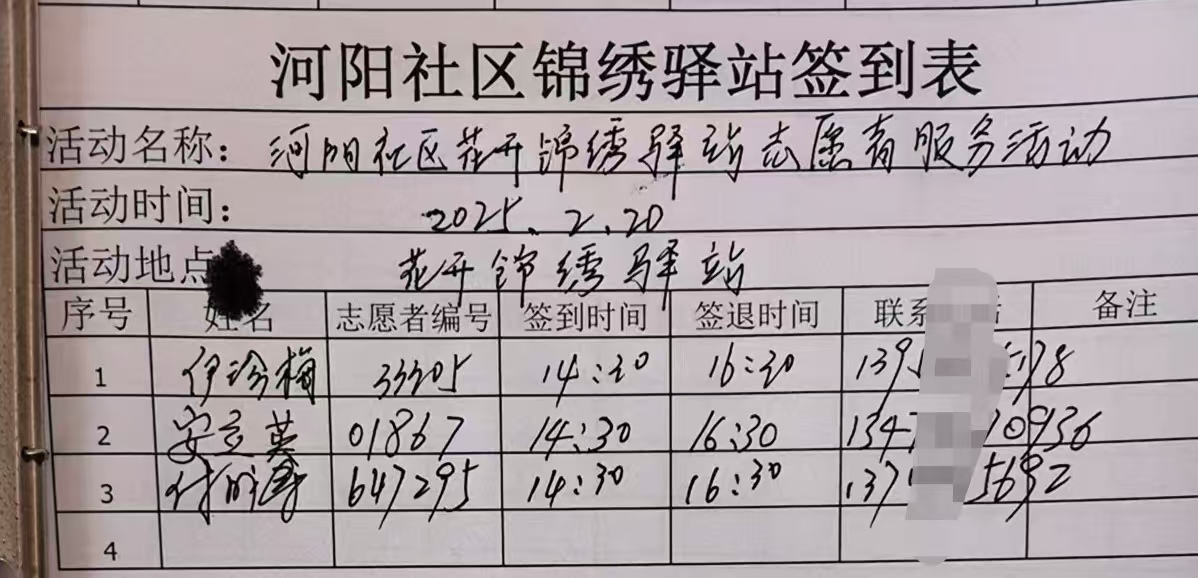 河阳社区锦绣驿站签到表
活动名称: 河阳社区花开锦绣驿站志愿者服务活动
活动时间: 2025.2.20
活动地点 花开锦绣驿站
序号 姓名 志愿者编号 签到时间 签退时间 联系 话 备注
1 伊珍梅 33205 14:30 16:30 139 178
2 安立英 01867 14:30 16:30 134 10936
3 647295 14:30 16:30 137 5692
4